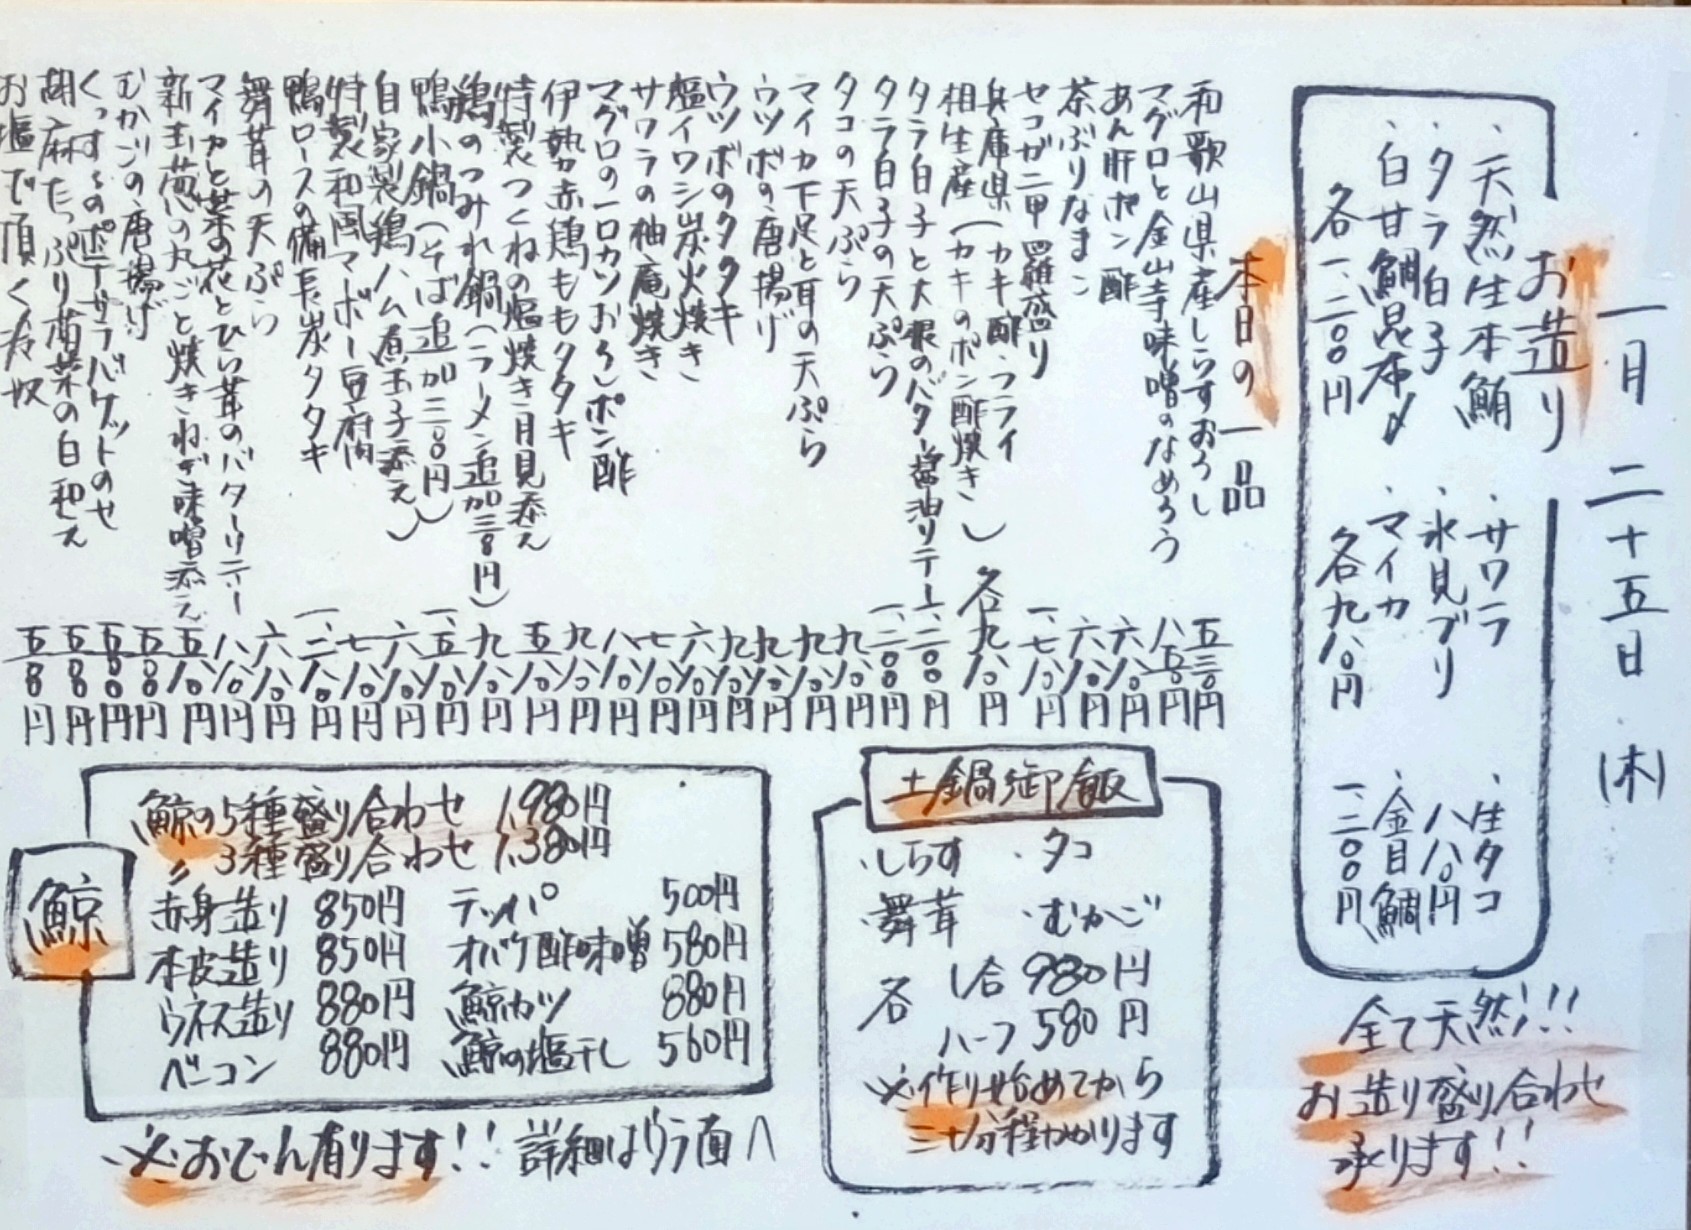 一月二十五日(木)
お造り
・天然生本鮪
・タラ白子
・白甘鯛昆布〆
各一、二〇〇円
・サワラ
・氷見ブリ
・マイカ
各九八〇円
・生タコ
八八〇円
・金目鯛
一、二〇〇円
全て天然!!
お造り盛り合わせ
承ります!!
本日の一品
和歌山県産しらすおろし 五三〇円
マグロと金山寺味噌のなめろう 八五〇円
あん肝ポン酢 六八〇円
茶ぶりなまこ 六八〇円
セコガニ甲羅盛り 一、七八〇円
兵庫県(カキ酢・フライ
相生産(カキのポン酢焼き) 各九八〇円
タラ白子と大根のバター醤油ソテー 一、二〇〇円
タラ白子の天ぷら 一、二〇〇円
タコの天ぷら 九八〇円
マイカ下足と耳の天ぷら 九八〇円
ウツボの唐揚げ 九八〇円
ウツボのタタキ 九八〇円
塩イワシ炭火焼き 六八〇円
サワラの柚庵焼き 七八〇円
マグロの一口カツおろしポン酢 八八〇円
伊勢赤鶏ももタタキ 九八〇円
特製つくねの塩焼き月見添え 五八〇円
鶏のつみれ鍋(ラーメン追加三三〇円) 九八〇円
鴨小鍋(そば追加三三〇円) 一、五八〇円
自家製鶏ハム(煮玉子添え) 六八〇円
特製和風マーボー豆腐 七八〇円
鴨ロースの備長炭タタキ 一、二八〇円
舞茸の天ぷら 六八〇円
マイカと菜の花とひら茸のバターソテー 八八〇円
新玉葱の丸ごと焼きねぎ味噌添え 五八〇円
むかごの唐揚げ 五〇〇円
くっすぅのポテサラバゲットのせ 五〇〇円
胡麻たっぷり菊菜の白和え 五〇〇円
お塩で頂く冷奴 五〇〇円
土鍋御飯
・しらす ・タコ
・舞茸 ・むかご
各 1合 980円
ハーフ 580円
※作り始めてから
三十分程かかります
鯨
鯨の5種盛り合わせ 1,980円
〃 3種盛り合わせ 1,380円
赤身造り 850円 テッパ 500円
本皮造り 850円 オバケ酢味噌 580円
ウネス造り 880円 鯨カツ 880円
ベーコン 880円 鯨の塩干し 560円
※おでん有ります!! 詳細はウラ面へ